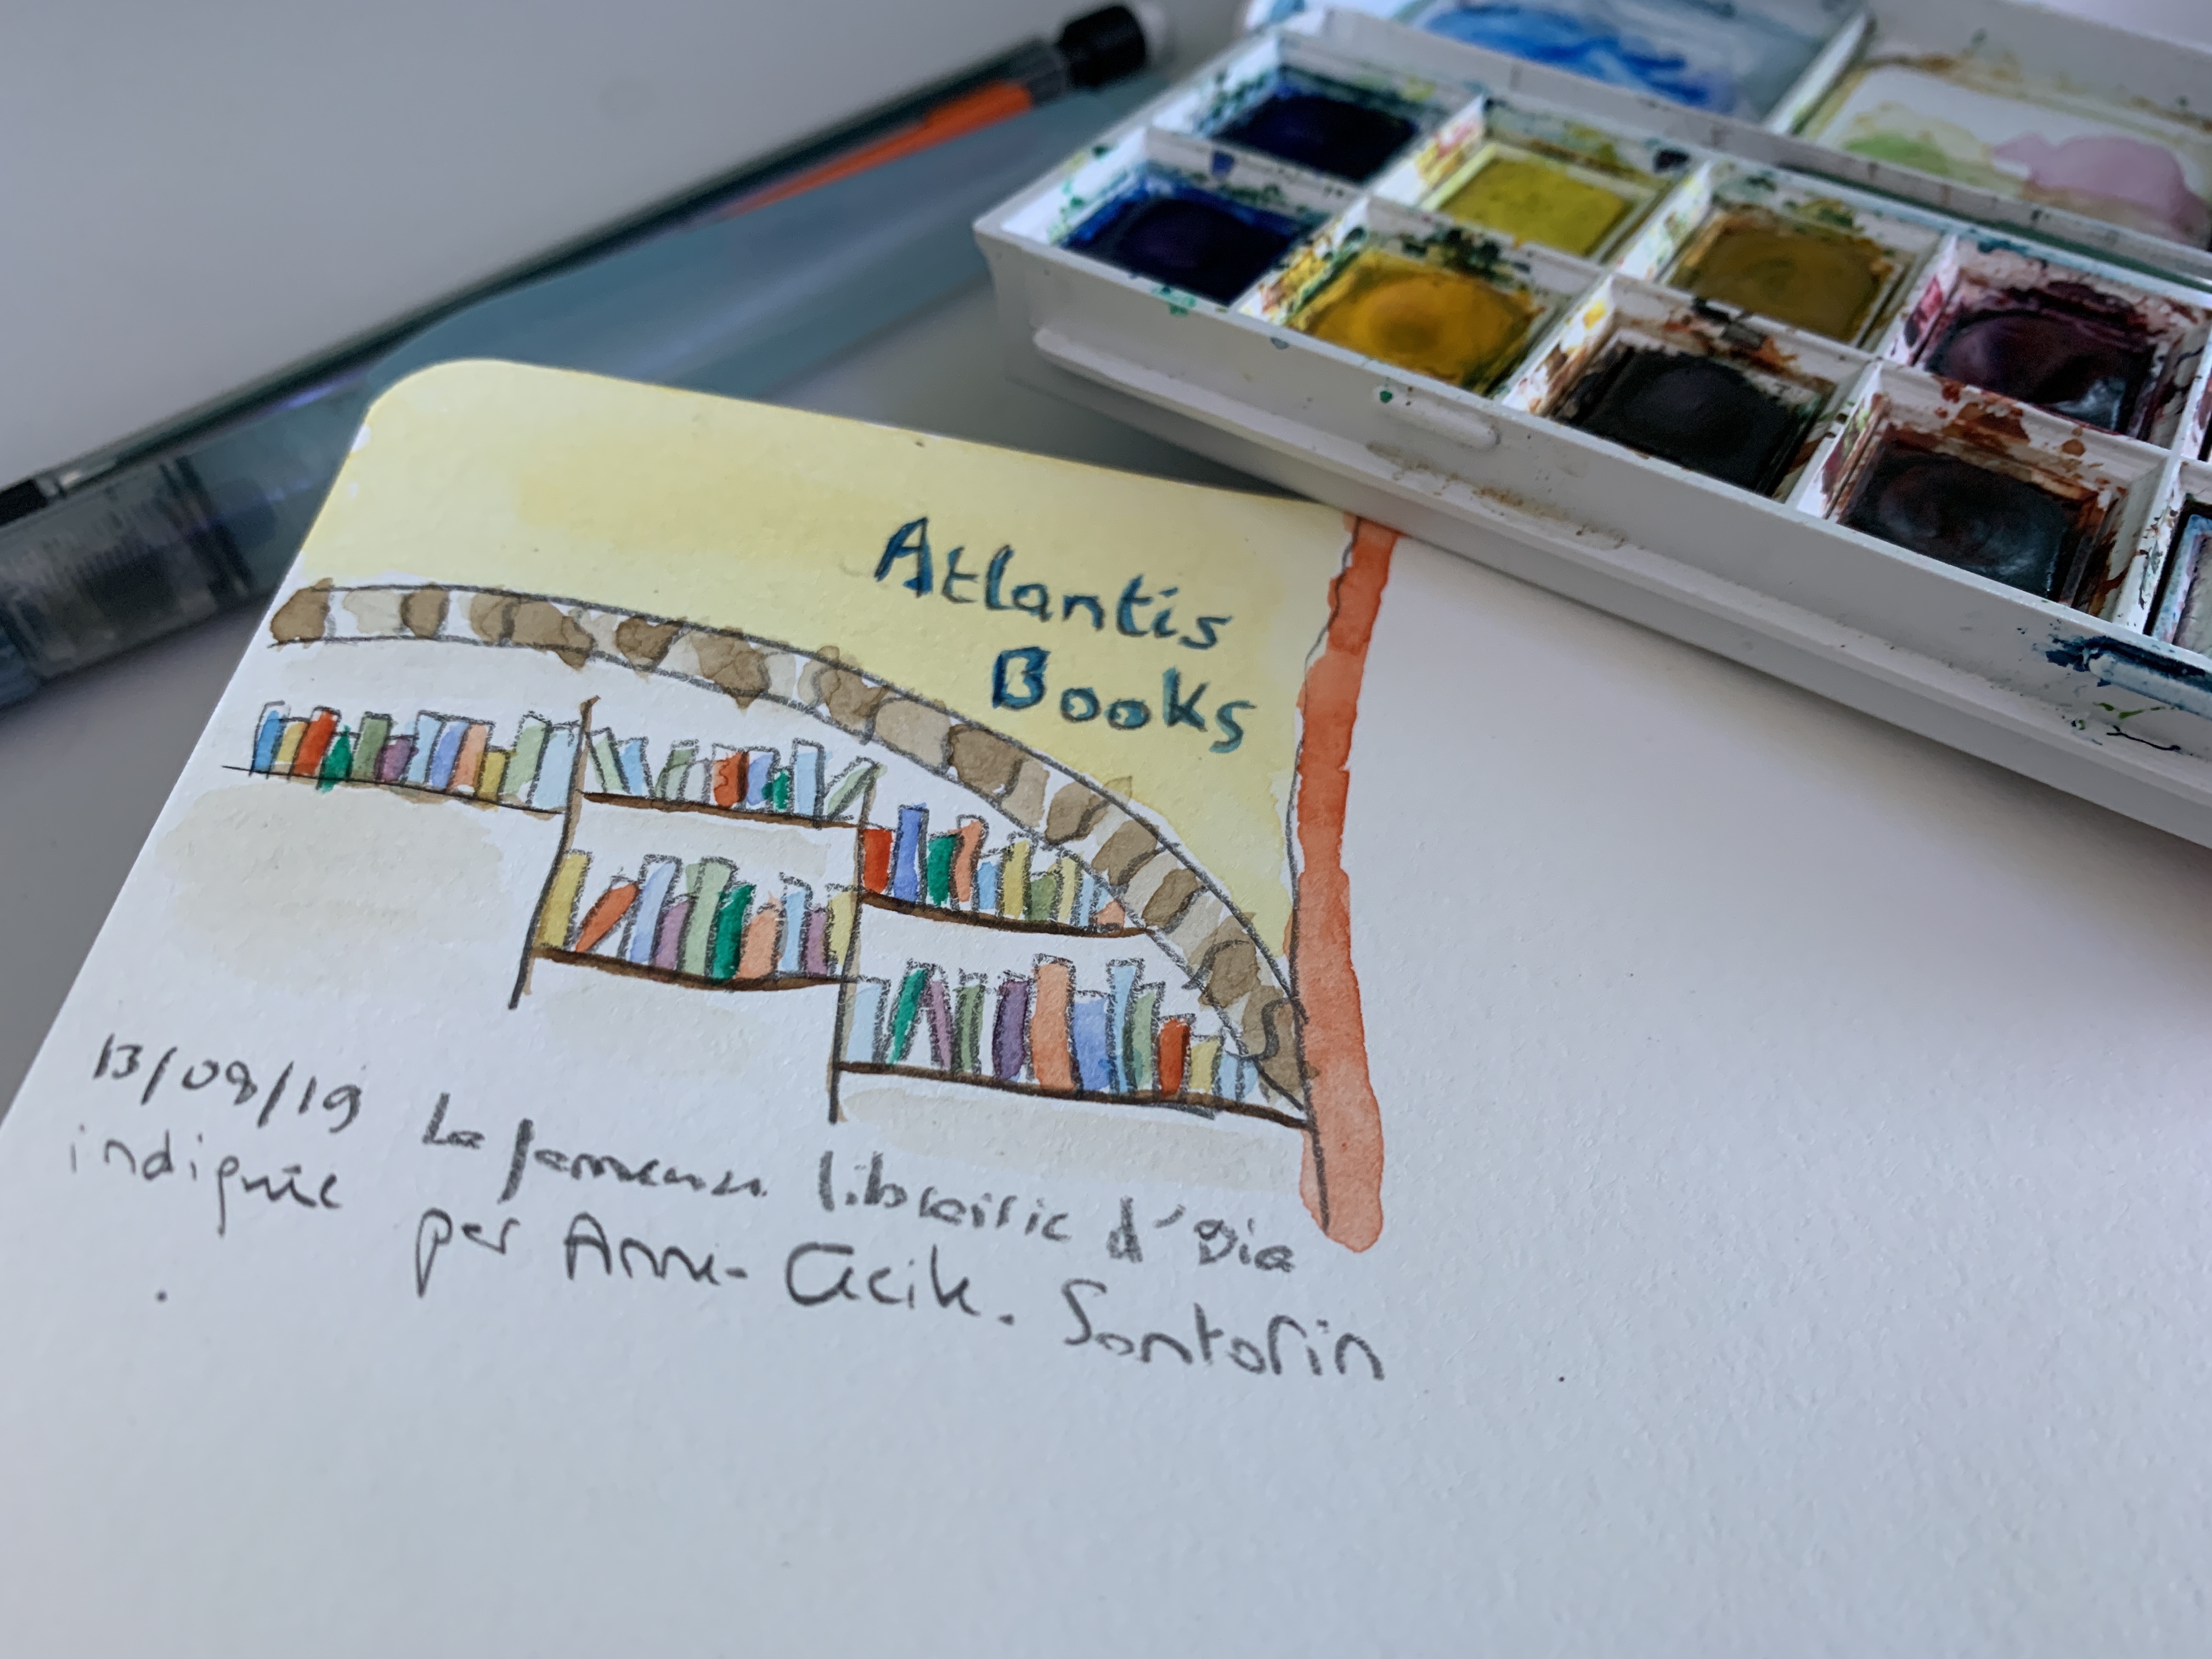 Atlantis
Books
13/08/19 La fameuse librairie d'Oia
indiquée par Anne-Cécile. Santorin